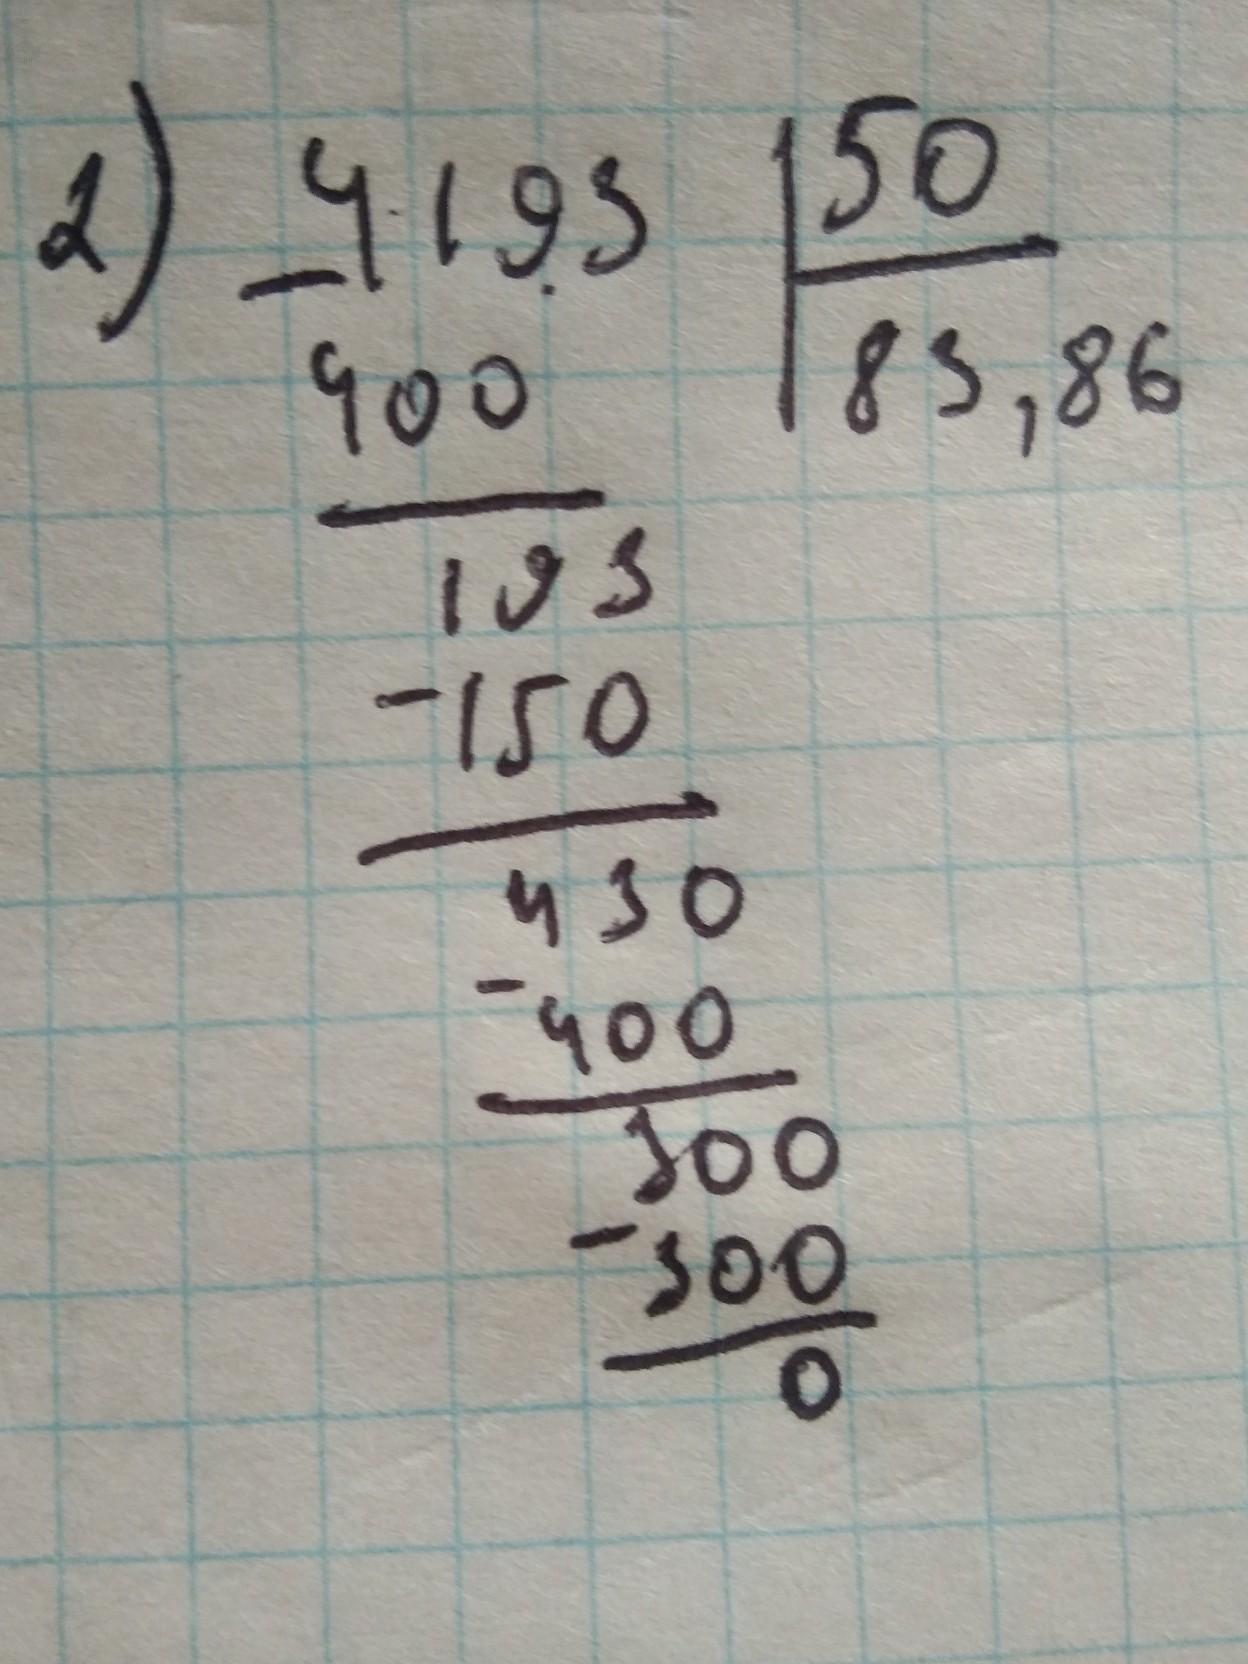 2) 4193 50
- 400 83,86
193
-150
430
-400
300
-300
0